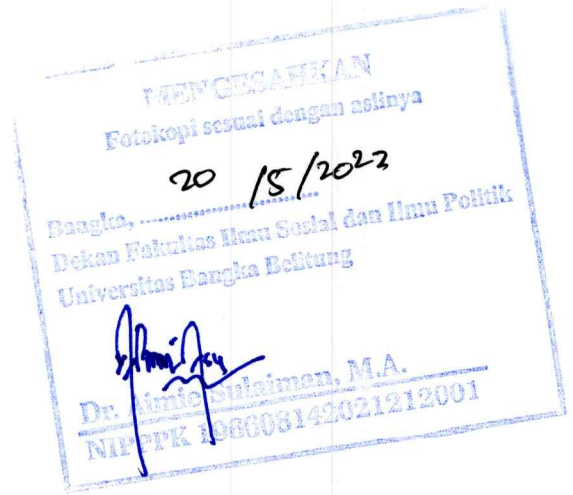 MENGESAHKAN
Fotokopi sesuai dengan aslinya
20 /5/2022
Bangka, ....................
Dekan Fakultas Ilmu Sosial dan Ilmu Politik
Universitas Bangka Belitung
Dr. Aimie Sulaiman, M.A.
NIPPPK 198608142021212001